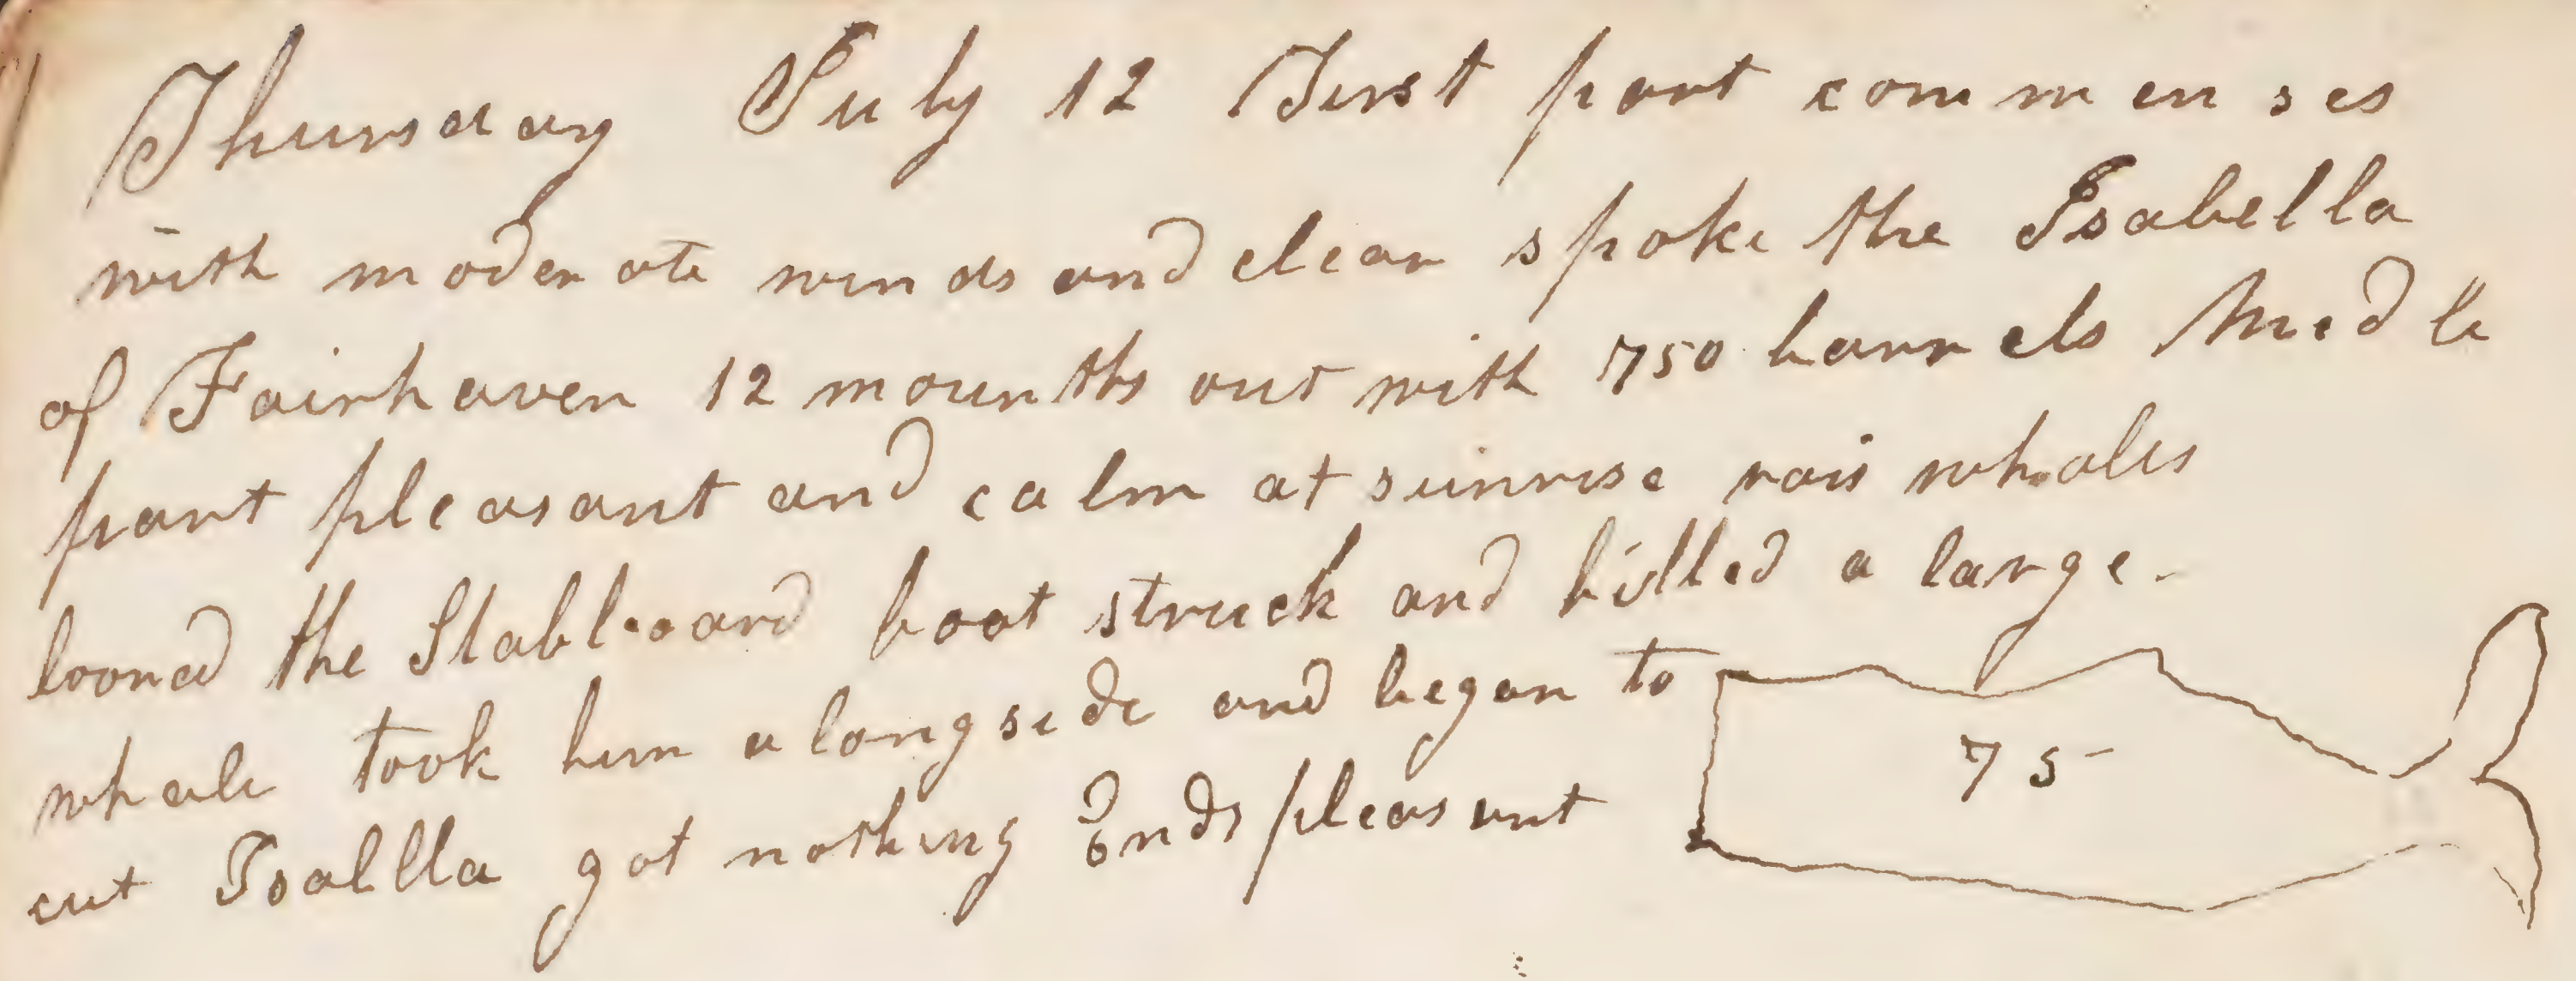 Thursday July 12 First part commenses
with moderate winds and clear spoke the Isabella
of Fairhaven 12 mounths out with 750 barrels Midle
part pleasant and calm at sunrise rais whales
looned the Stablboard boat struck and killed a large
whale took him alongside and began to
cut Isablla got nothing Ends pleasant
75